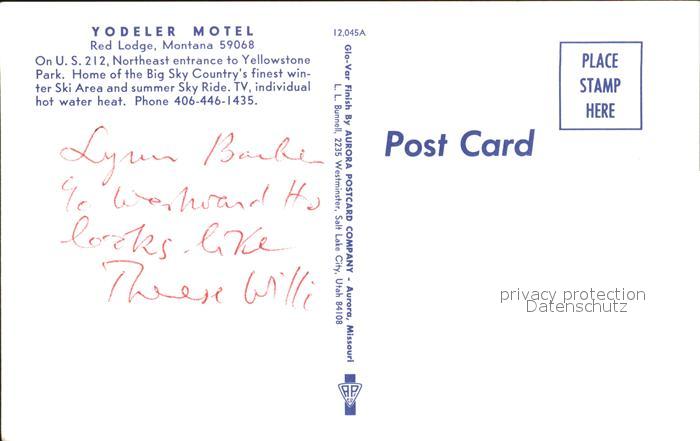 YODELER MOTEL
Red Lodge, Montana 59068
On U. S. 212, Northeast entrance to Yellowstone
Park. Home of the Big Sky Country's finest win-
ter Ski Area and summer Sky Ride. TV, individual
hot water heat. Phone 406-446-1435.
Lynn
Westward Ho
looks like
Therese Willi
12,045A
Glo-Var Finish By AURORA POSTCARD COMPANY - Aurora, Missouri
L. L. Bunnell, 2235 Westminster, Salt Lake City, Utah 84108
Post Card
PLACE
STAMP
HERE
privacy protection
Datenschutz